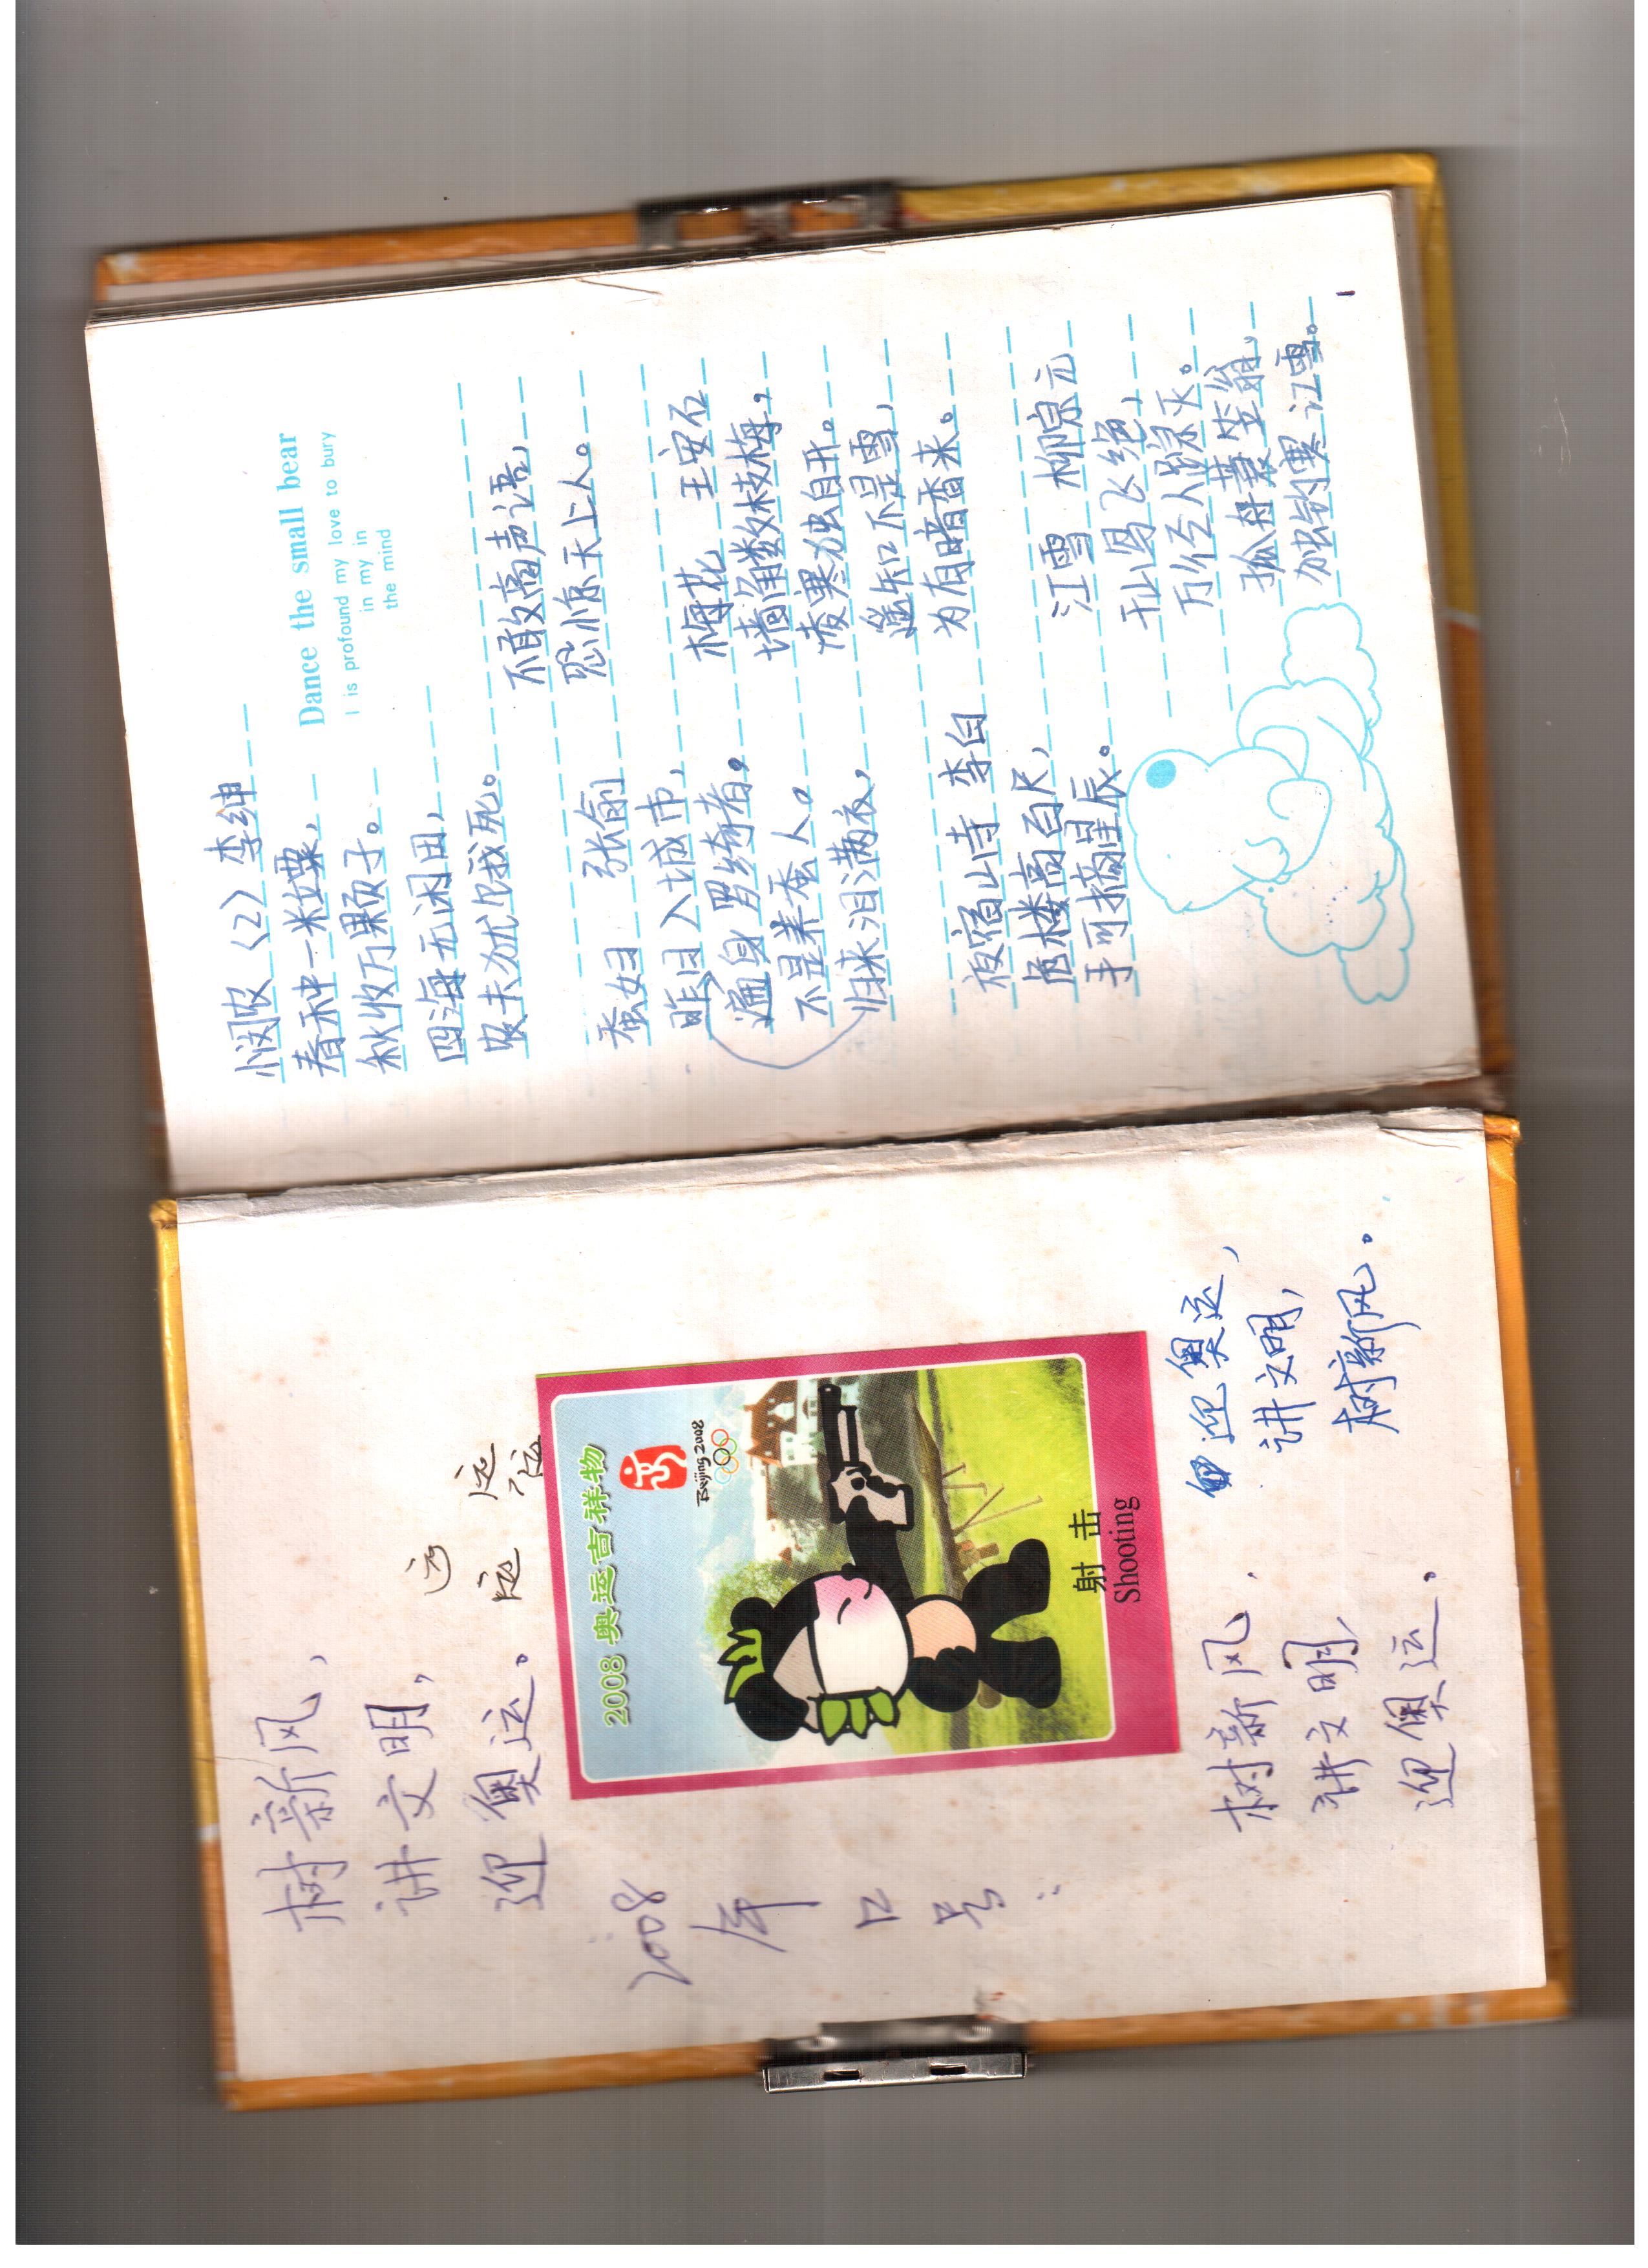 树新风，
讲文明，
迎奥运。
2008
年
口
号：
2008 奥运吉祥物
Beijing 2008
射击
Shooting
迎奥运，
讲文明，
树新风。
树新风，
讲文明，
迎奥运。
悯农（2） 李绅
Dance the small bear
I is profound my love to bury
in my in
the mind
春种一粒粟，
秋收万颗子。
四海无闲田，
农夫犹饿死。
蚕妇 张偷
昨日入城市，
遍身罗绮者。
不是养蚕人。
归来泪满衣，
夜宿山寺 李白
危楼高百尺，
手可摘星辰。
不敢高声语，
恐惊天上人。
梅花 王安石
墙角数枝梅，
凌寒独自开。
遥知不是雪，
为有暗香来。
江雪 柳宗元
千山鸟飞绝，
万径人踪灭。
孤舟蓑笠翁，
独钓寒江雪。